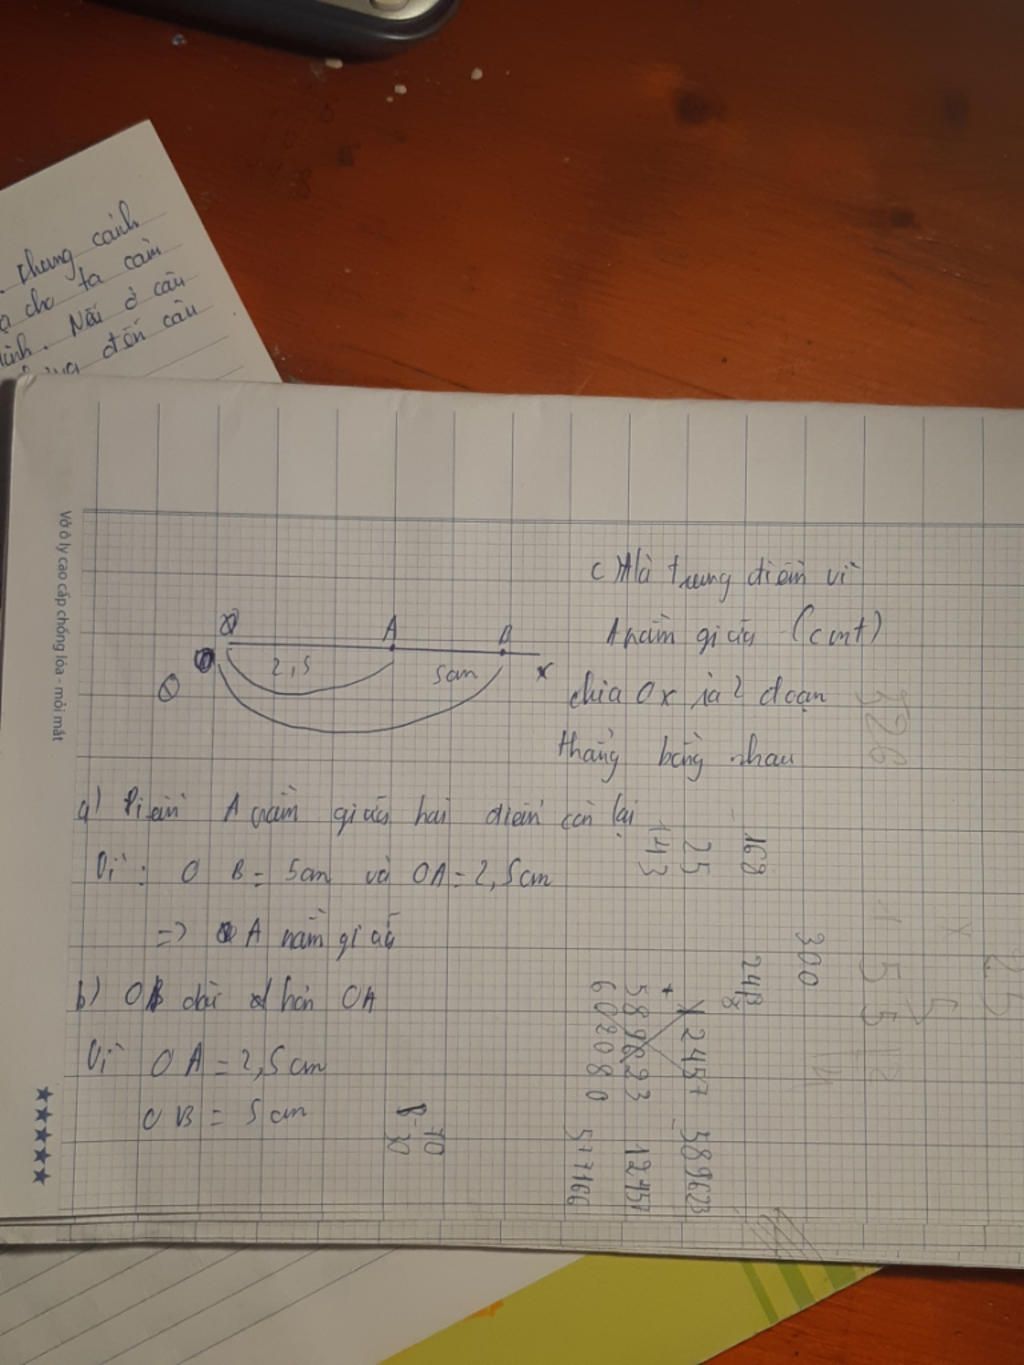 chung cảnh
cho ta cảm
Nếu ở câu
đến câu
Vở ô ly cao cấp chống lóa - mỏi mắt
A B
2,5 5cm x
c) A là trung điểm vì
A nằm giữa (cmt)
chia Ox ra 2 đoạn
thẳng bằng nhau
a) Điểm A nằm giữa hai điểm còn lại
Vì: OB = 5cm và OA = 2,5cm
=> A nằm giữa
b) OB dài hơn OA
Vì OA = 2,5cm
OB = 5cm
168
25
143
300
12457
589623
602080
589623
12457
577166
326